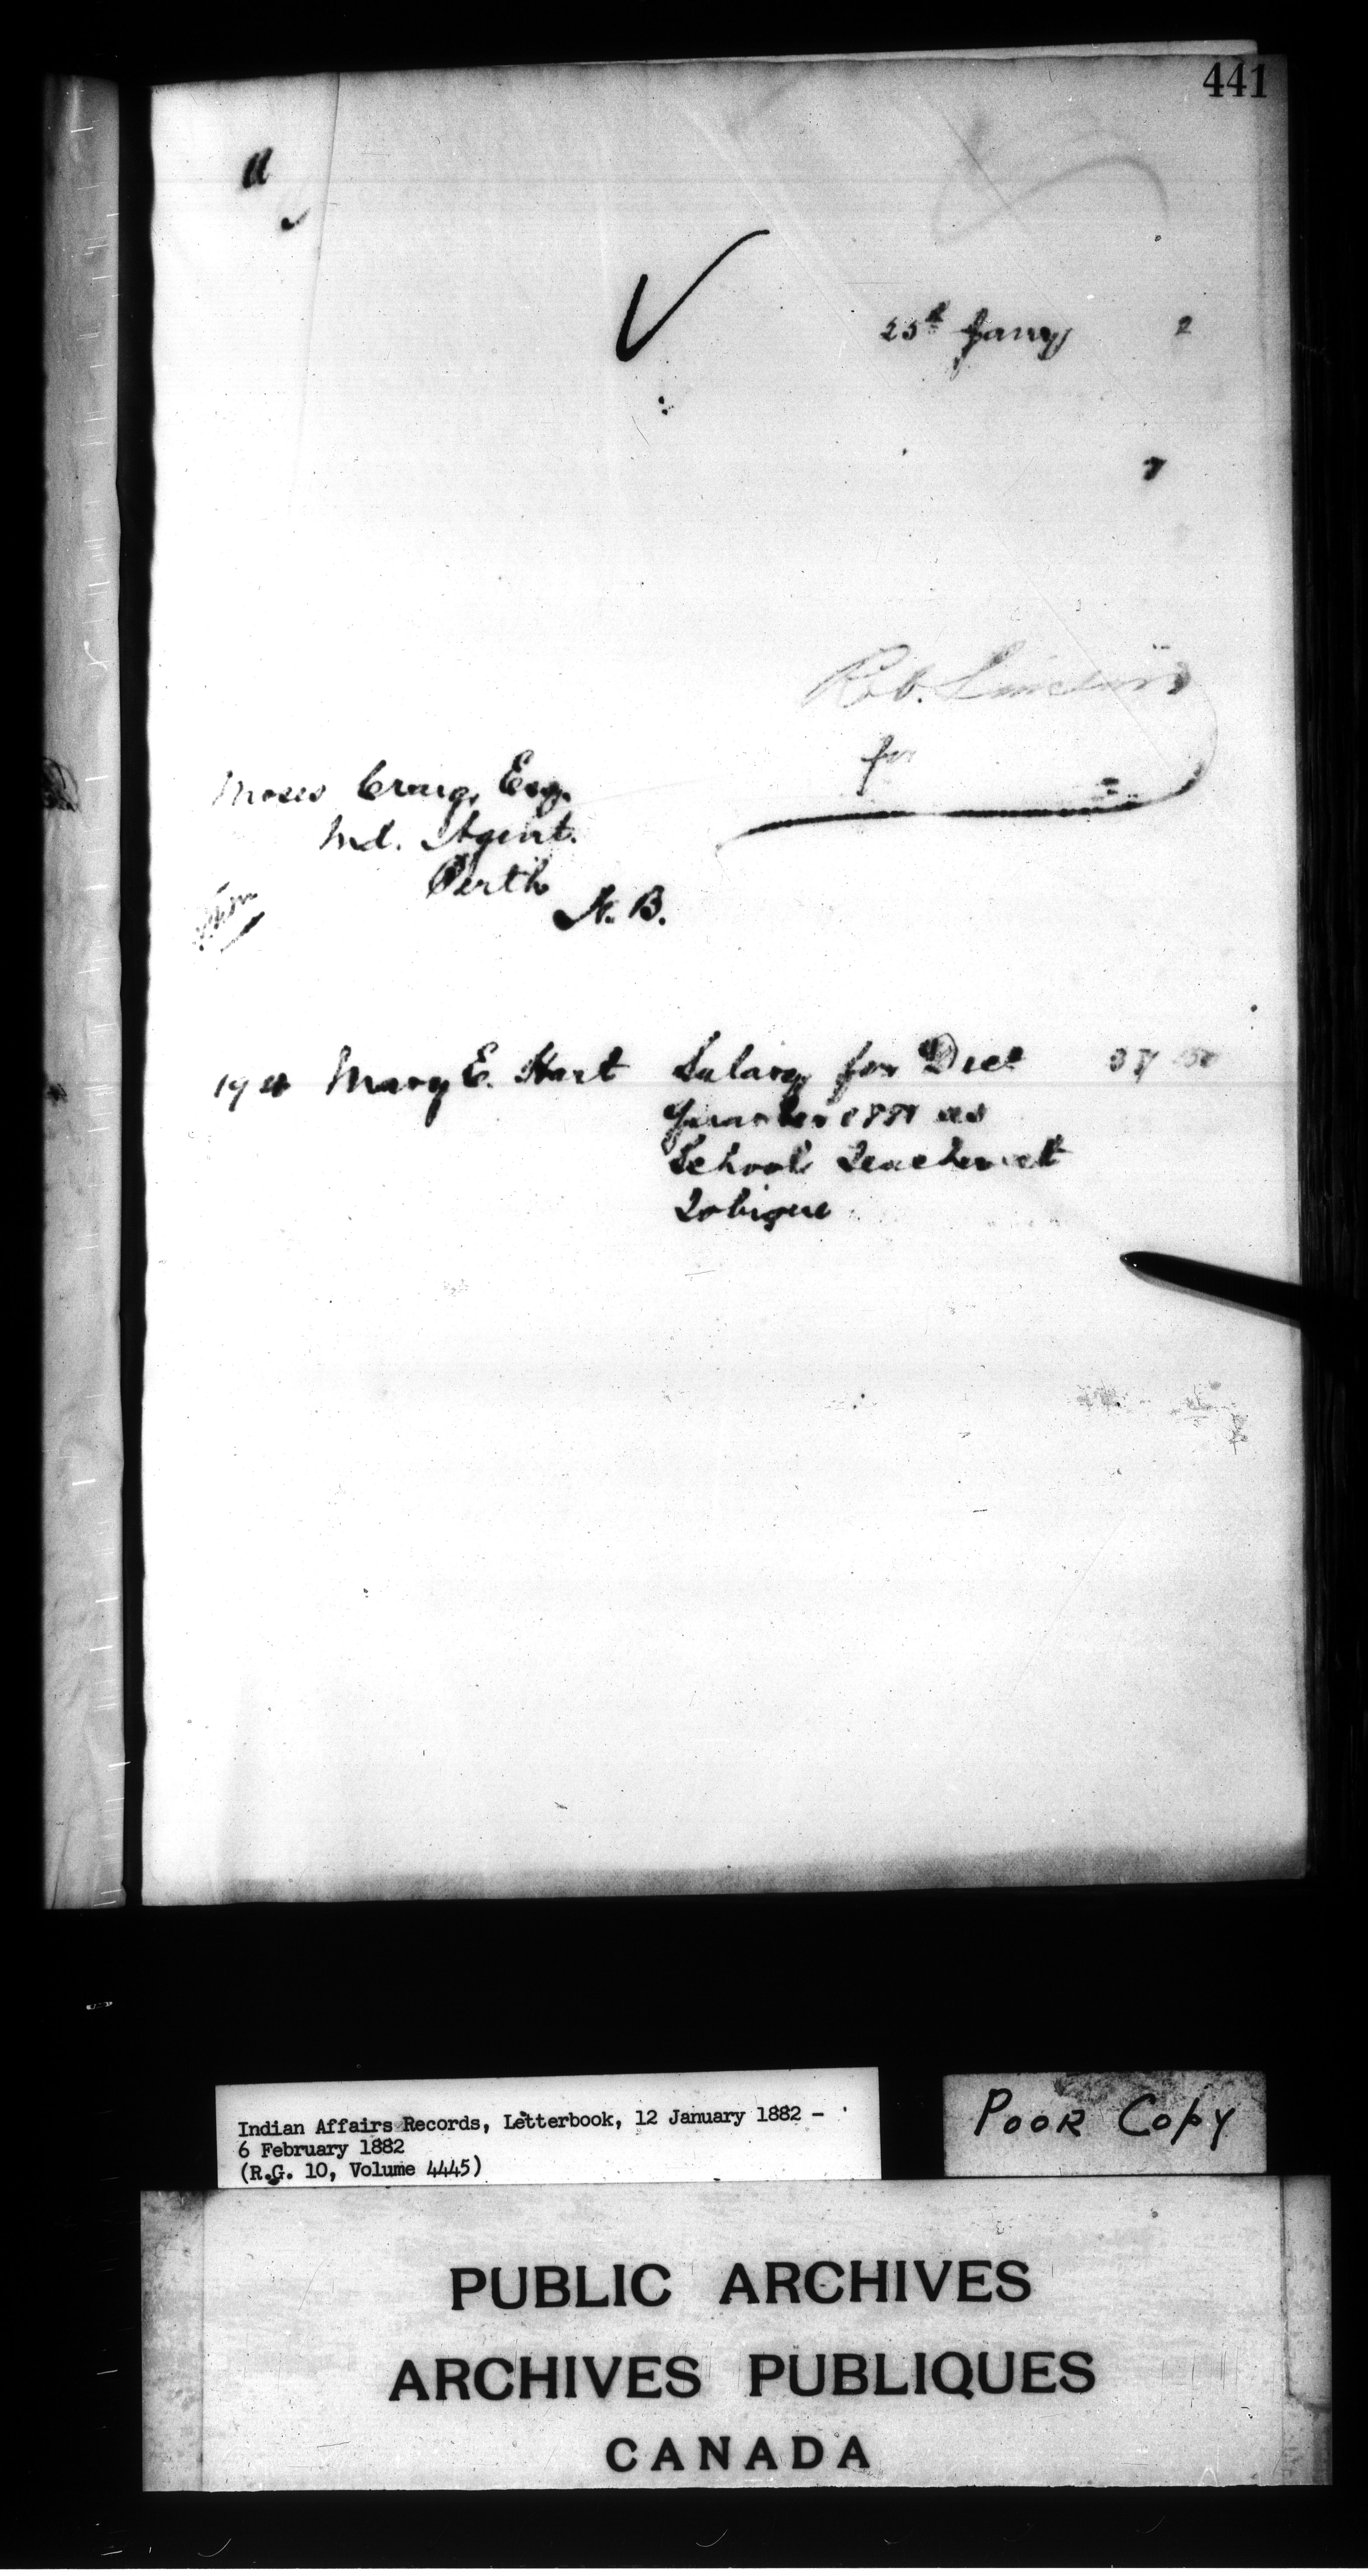 441
25th Jany 2
Rob. Sinclair
for
Moses Craig, Esq.
Ind. Agent.
Perth
N. B.
Mary E. Hart Salary for Dect 37 50
Quarter 1881 as
School Teacher at
Tobique
Indian Affairs Records, Letterbook, 12 January 1882 -
6 February 1882
(R.G. 10, Volume 4445)
POOR COPY
PUBLIC ARCHIVES
ARCHIVES PUBLIQUES
CANADA